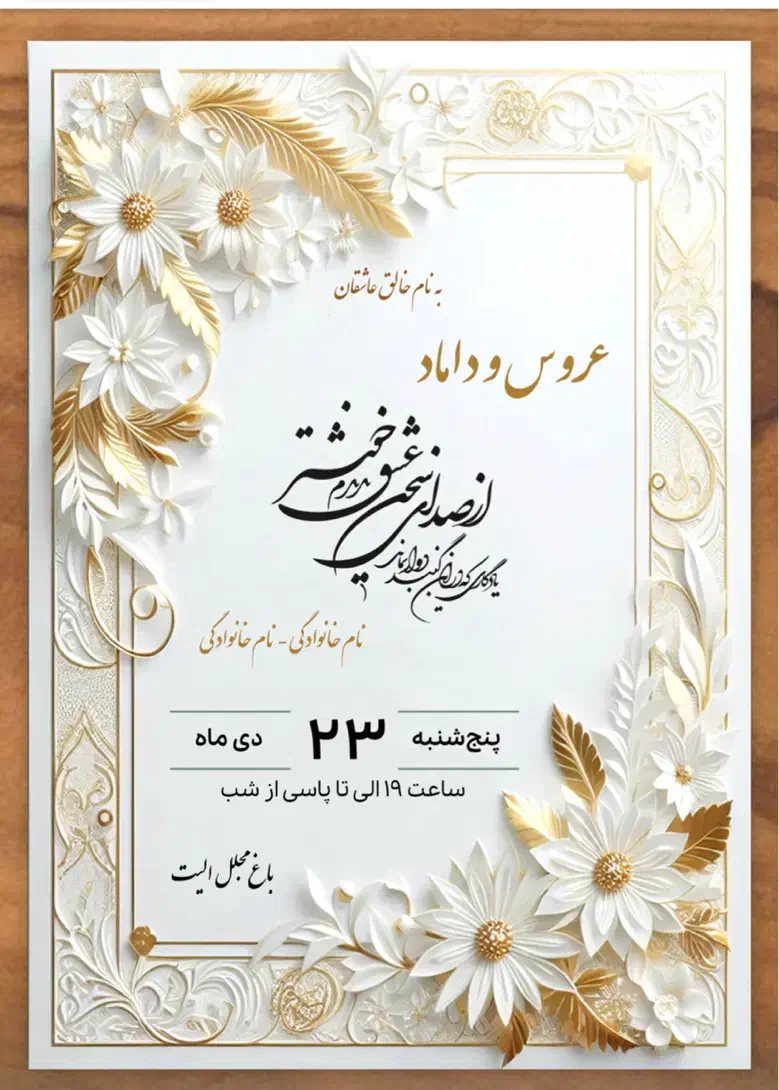 به نام خالق عاشقان
عروس و داماد
از صدای سخن عشق ندیدم خوشتر
یادگاری که در این گنبد دوار بماند
نام خانوادگی - نام خانوادگی
پنج‌شنبه ۲۳ دی ماه
ساعت ۱۹ الی تا پاسی از شب
باغ مجلل الیت